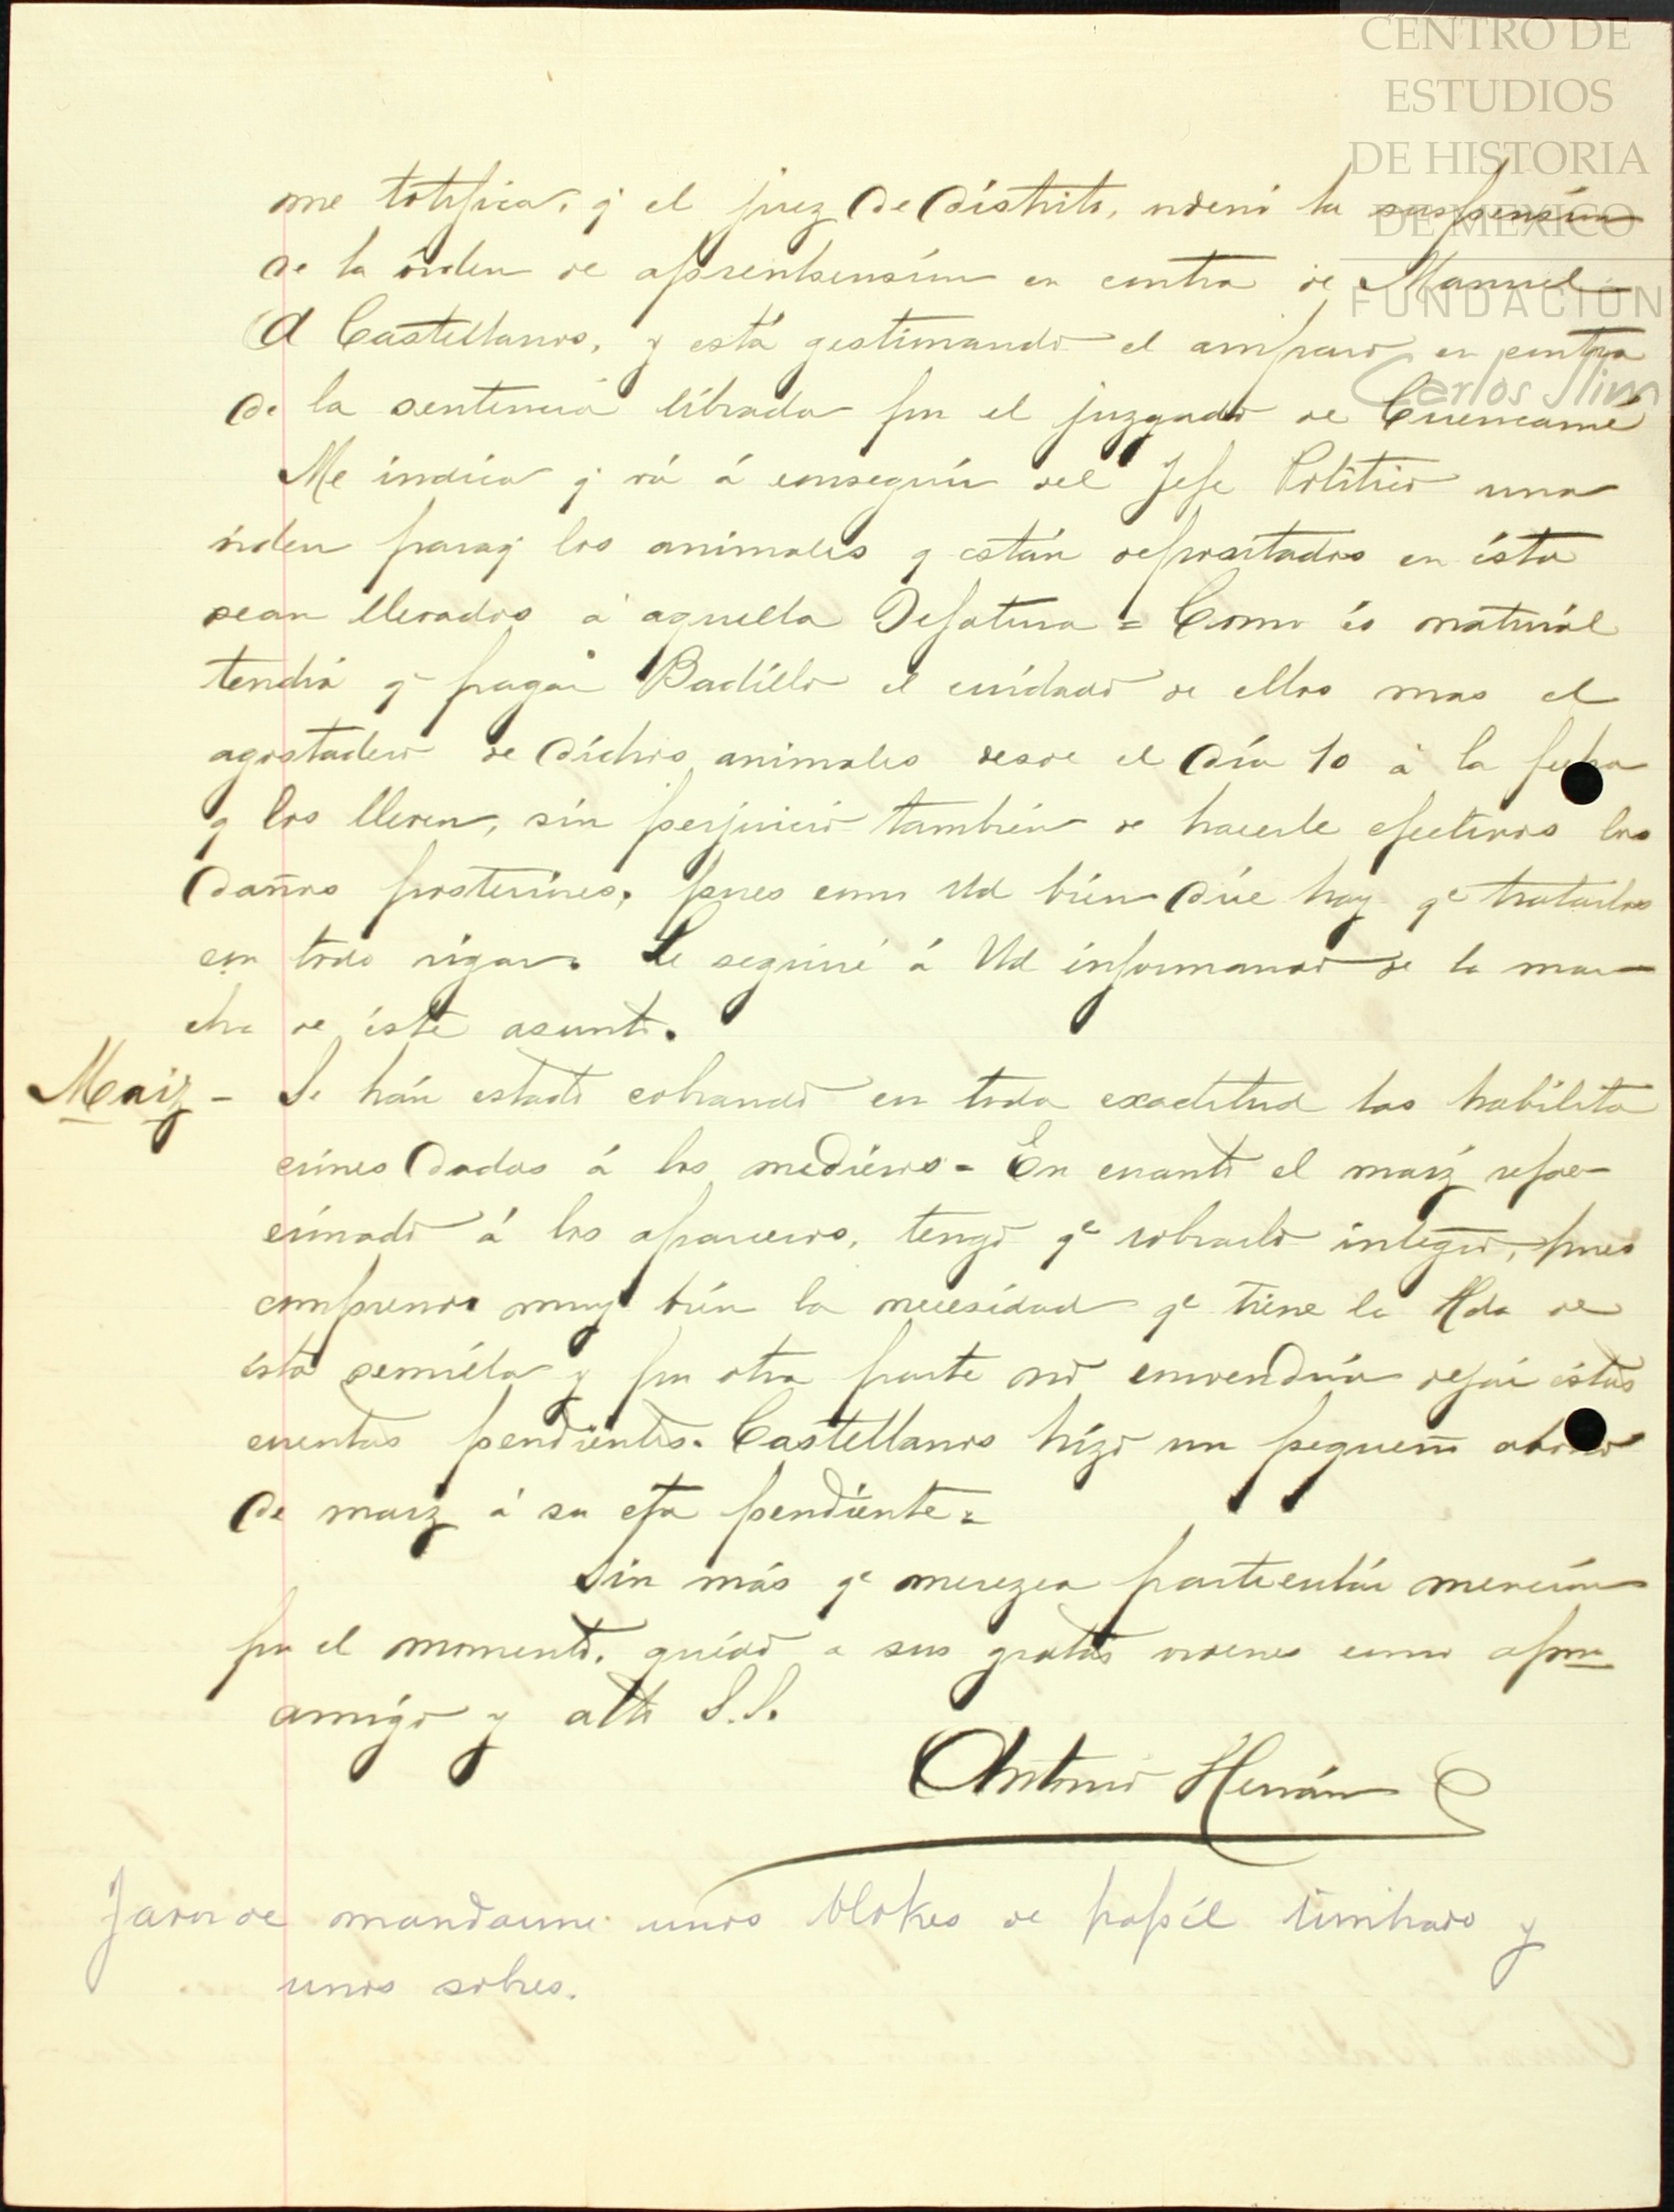 CENTRO DE
ESTUDIOS
DE HISTORIA
DE MEXICO
FUNDACION
Carlos Slim
me totifica, q el juez de distrito, ordenó la suspensión
de la órden de aprenhensión en contra de Manuel
A Castellanos, y está gestionando el amparo en contra
de la sentencia librada por el juzgado de Cuencamé
Me indica q vá á conseguir del Jefe Político una
órden paraq los animales q están depositados en ésta
sean llevados á aquella Jefatura = Como és naturál
tendrá qe pagar Badillo el cuidado de ellos mas el
agostadero de dichos animales desde el día 10 á la fecha
q los lleven, sin perjuicio también de hacerle efectivos los
daños posteriores, pues como Ud bién dice hay qe tratarlos
con todo rigor. Le seguiré á Ud informando de la mar-
cha de éste asunto.
Maiz - Se hán estado cobrando en toda exactitud las habilita
ciones dadas á los mediéros - En cuanto el maiz refac-
cionado á los aparceros, tengo qe cobrarlo integro, pues
comprendo muy bién la necesidad qe tiene la Hda de
ésta semilla y por otra parte no convendría dejar éstas
cuentas pendientes. Castellanos hizo un pequeño abono
de maiz á su cta pendiente =
Sin más qe merezca particulár mención
por el momento, quédo a sus gratas ordenes como afmo
amigo y atto S.S.
Antonio Hernán
Favor de mandarme unos blokes de papél timbrado y
unos sobres.